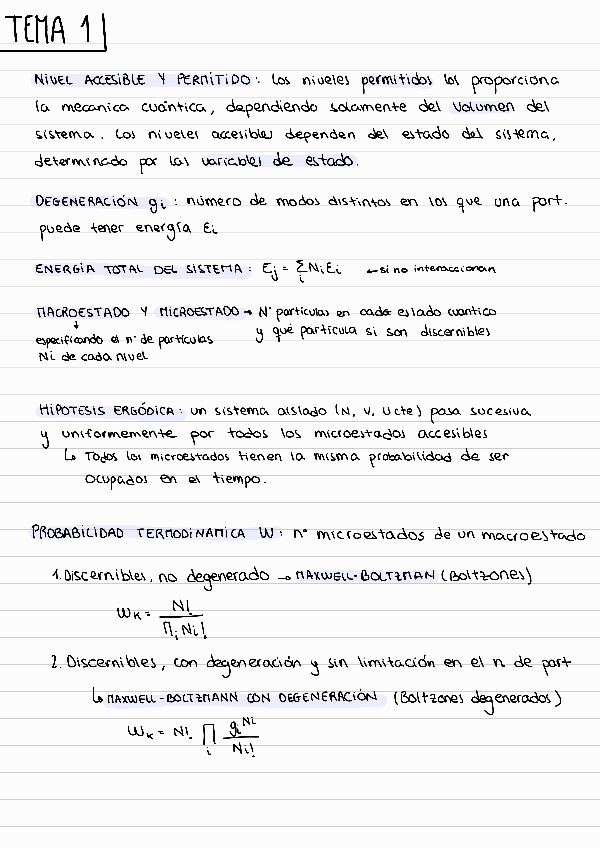 TEMA 1
NIVEL ACCESIBLE Y PERMITIDO: los niveles permitidos los proporciona
la mecanica cuántica, dependiendo solamente del volumen del
sistema. Los niveles accesibles dependen del estado del sistema,
determinado por las variables de estado.
DEGENERACIÓN gi: número de modos distintos en los que una part.
puede tener energía Ei
ENERGIA TOTAL DEL SISTEMA: Ej = Σi NiEi ← si no interaccionan
MACROESTADO Y MICROESTADO → Nº partículas en cada estado cuántico
↓
y qué partícula si son discernibles
especificando el nº de partículas
Ni de cada nivel
HIPOTESIS ERGÓDICA: un sistema aislado (N, V, U cte) pasa sucesiva
y uniformemente por todos los microestados accesibles
↳ Todos los microestados tienen la misma probabilidad de ser
ocupados en el tiempo.
PROBABILIDAD TERMODINAMICA W: nº microestados de un macroestado
1. Discernibles, no degenerado → MAXWELL-BOLTZMAN (Boltzones)
WK = N! / Πi Ni!
2. Discernibles, con degeneración y sin limitación en el n de part
↳ MAXWELL-BOLTZMANN CON DEGENERACIÓN (Boltzones degenerados)
WK = N! Πi g^Ni / Ni!